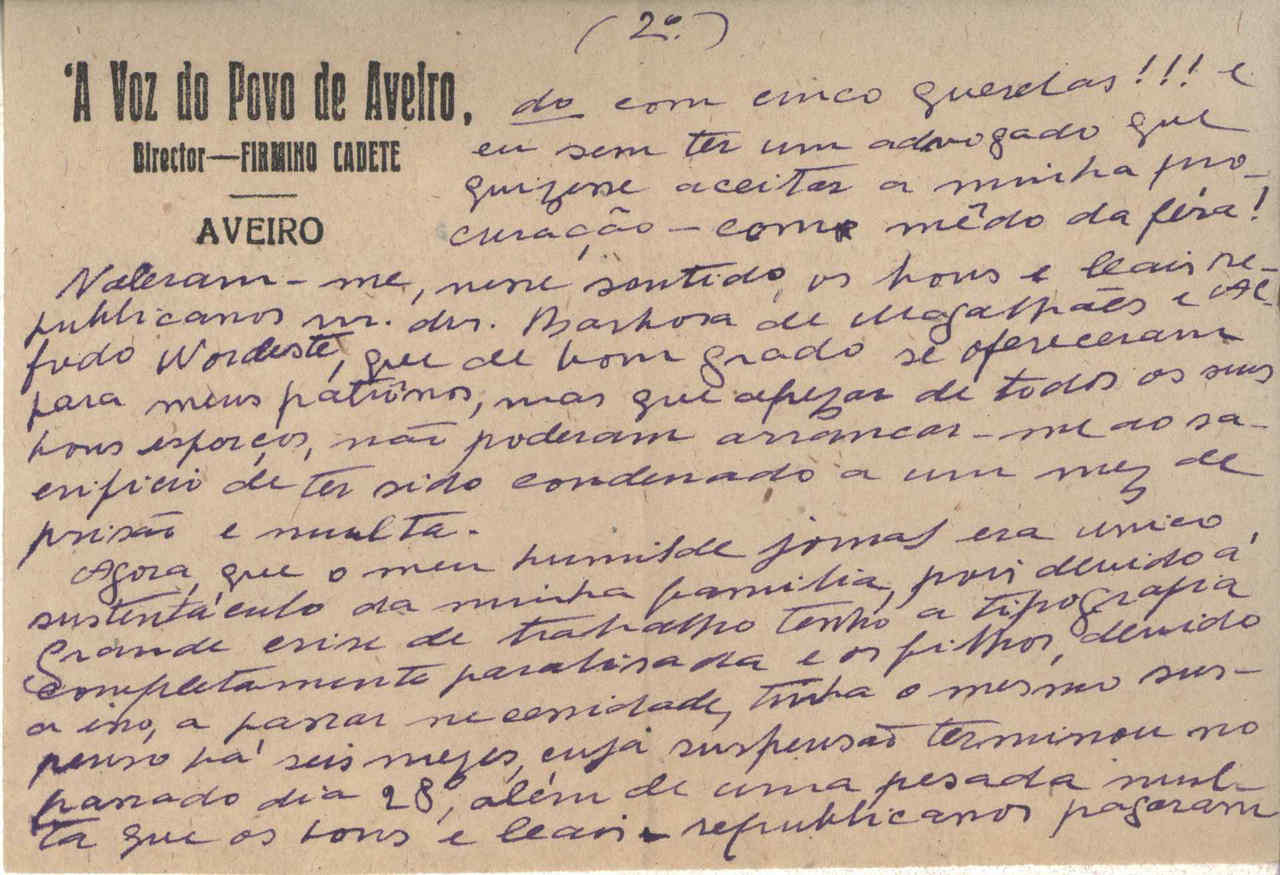 (2º.)
'A Voz do Povo de Aveiro,
Director—FIRMINO CADETE
AVEIRO
do com cinco querelas!!! e
eu sem ter um advogado que
quizesse aceitar a minha pro-
curação – com mêdo da féra!
Valeram-me, nesse sentido, os bons e leais re-
publicanos sr. drs. Barbosa de Magalhães e Al-
fredo Nordeste, que de bom grado se ofereceram
para meus patrônos, mas que apezar de todos os seus
bons esforços, não poderam arrancar-me ao sa-
crificio de ter sido condenado a um mez de
prisão e multa.
Agora, que o meu humilde jornal era unico
sustentáculo da minha familia, pois devido á
grande crise de trabalho tenho a tipografia
completamente paralisada e os filhos, devido
a isso, a passar necessidade, tinha o mesmo sus-
penso há seis mezes, cuja suspensão terminou no
passado dia 28, além de uma pesada mul-
ta que os bons e leais republicanos pagaram